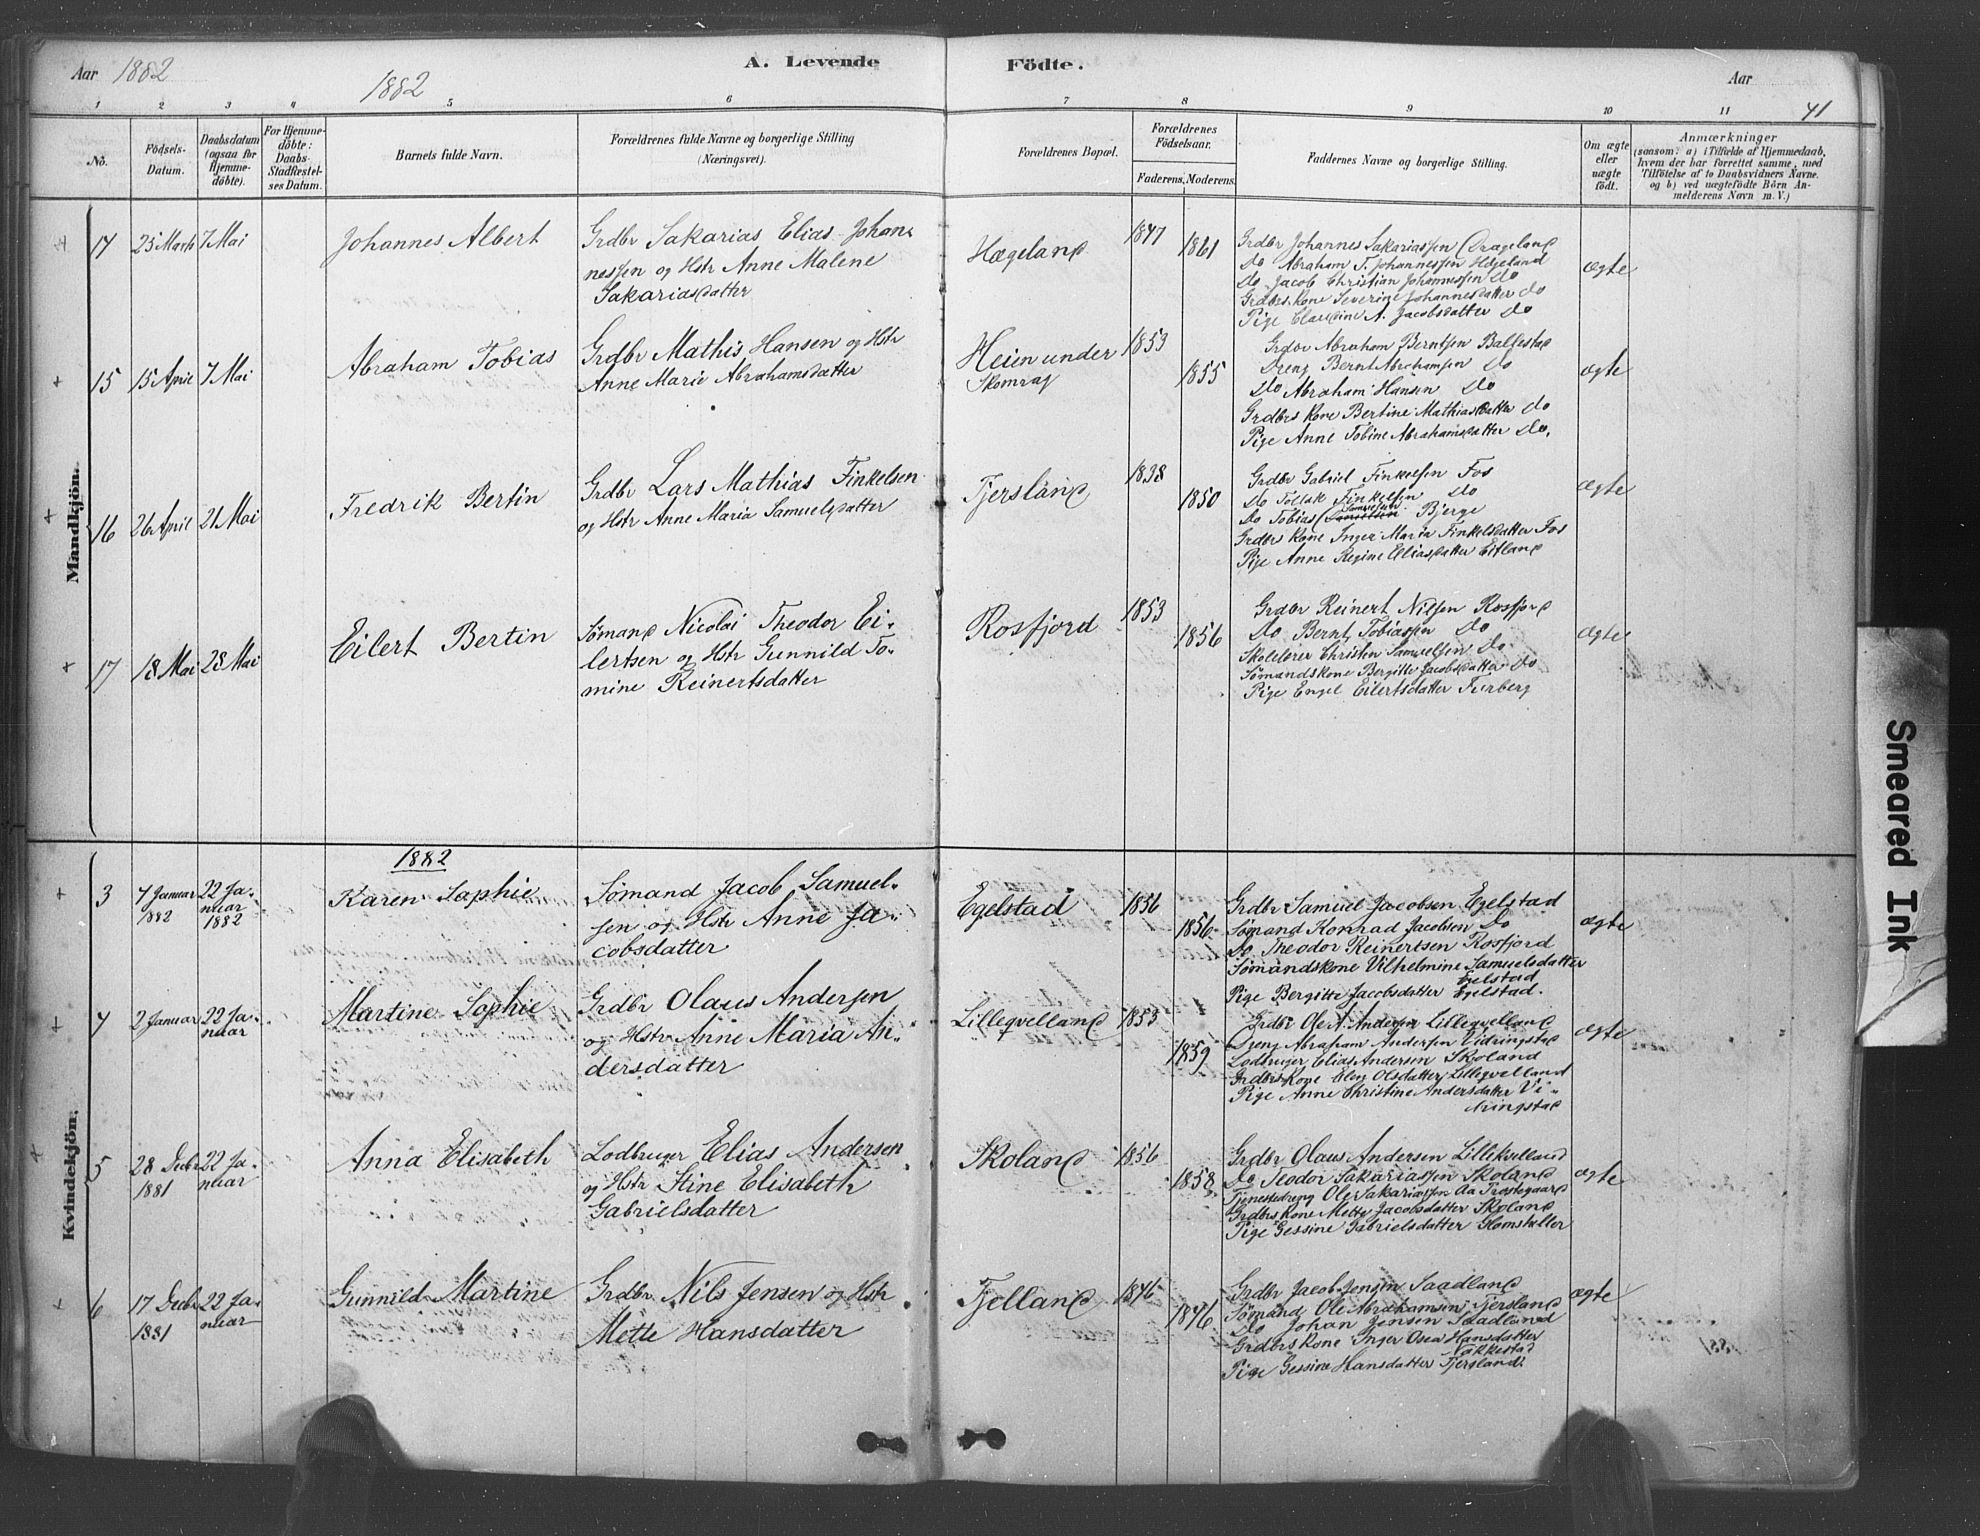 Aar 1882
1882
A. Levende Födte.
Aar
41
1 2 3 4 5 6 7 8 9 10 11
No.
Födsels-Datum.
Daabsdatum (ogsaa for Hjemmedöbte).
For Hjemmedöbte: Daabs-Stadfæstelses Datum.
Barnets fulde Navn.
Forældrenes fulde Navne og borgerlige Stilling
(Næringsvei).
Forældrenes Bopæl.
Forældrenes Födselsaar.
Faderens. Moderens.
Faddernes Navne og borgerlige Stilling.
Om ægte eller uægte födt.
Anmærkninger
(saasom: a) i Tilfælde af Hjemmedaab,
hvem der har forrettet samme, med
Tilföielse af to Daabsvidners Navne.
og b) ved uægtefödte Börn An-
melderens Navn m. V.)
Mandkjön.
14 25 Marts 7 Mai
Johannes Albert
Grdbr Sakarias Elias Johan-
nessen og Hstr Anne Malene
Sakariasdatter
Hægeland
1847
1861
Grdbr Johannes Sakariassen Drageland
Do Abraham T. Johannessen Hegeland
Do Jacob Christian Johannessen Do
Grdbrs Kone Severine Johannesdatter Do
Pige Claudine A. Jacobsdatter Do
ægte
15 15 April 7 Mai
Abraham Tobias
Grdbr Mathis Hansen og Hstr
Anne Marie Abrahamsdatter
Heien under
Skomrag
1853
1855
Grdbr Abraham Berntsen Ballestad
Dreng Bernt Abrahamsen Do
Do Abraham Hansen Do
Grdbrs Kone Bertine Mathiasdatter Do
Pige Anne Tobine Abrahamsdatter Do.
ægte
16 26 April 21 Mai
Fredrik Bertin
Grdbr Lars Mathias Finkelsen
og Hstr Anne Maria Samuelsdatter
Tjersland
1838
1850
Grdbr Gabriel Finkelsen Fos
Do Tollak Finkelsen Do
Do Tobias Samuelsen Bjerge
Grdbr Kone Inger Maria Finkelsdatter Fos
Pige Anne Regine Eliasdatter Eitland
ægte
17 18 Mai 28 Mai
Eilert Bertin
Sømand Nicolai Theodor Ei-
lertsen og Hstr Gunnild To-
mine Reinertsdatter
Rosfjord
1853
1856
Grdbr Reinert Nilsen Rosfjord
Do Bernt Tobiassen Do
Skolelærer Christen Samuelsen Do
Sømandskone Bergitte Jacobsdatter Do
Pige Engel Eilertsdatter Furberg
ægte
Kvindekjön.
1882
3 7 Januar 1882 22 Ja-
nuar 1882
Karen Sophie
Sømand Jacob Samuel-
sen og Hstr Anne Ja-
cobsdatter
Egelstad
1856
1856
Grdbr Samuel Jacobsen Egelstad
Sømand Konrad Jacobsen Do
Do Theodor Reinertsen Rosfjord
Sømandskone Vilhelmine Samuelsdatter
Egelstad
Pige Bergitte Jacobsdatter Egelstad.
ægte
4 2 Januar 22 Ja-
nuar
Martine Sophie
Grdbr Olaus Andersen
og Hstr Anne Maria An-
dersdatter
Lilleqvelland
1853
1859
Grdbr Ole A. Andersen Lilleqvelland
Dreng Abraham Andersen Vidringstad
Lodbruger Elias Andersen Skoland
Grdbrs Kone Elen Olsdatter Lilleqvelland
Pige Anne Christine Andersdatter Vi-
dringstad
ægte
5 28 Decbr 1881 22 Ja-
nuar
Anna Elisabeth
Lodbruger Elias Andersen
og Hstr Stine Elisabeth
Gabrielsdatter
Skoland
1856
1858
Grdbr Olaus Andersen Lillekvelland
Do Teodor Sakariassen Skoland
Tjenestedreng Ole Sakariassen Aa Prestegaard
Grdbrs Kone Mette Jacobsdatter Skoland
Pige Gessine Gabrielsdatter
ægte
6 17 Decbr 1881 22 Ja-
nuar
Gunnild Martine
Grdbr Nils Jensen og Hstr
Mette Hansdatter
Fjelland
1846
1846
Grdbr Jacob Jensen Saadland
Sømand Ole Abrahamsen Tjersland
Do Johan Jensen Saadland
Grdbrs Kone Inger Osea Hansdatter
Nakkestad
Pige Gessine Hansdatter Tjersland
ægte
Smeared Ink